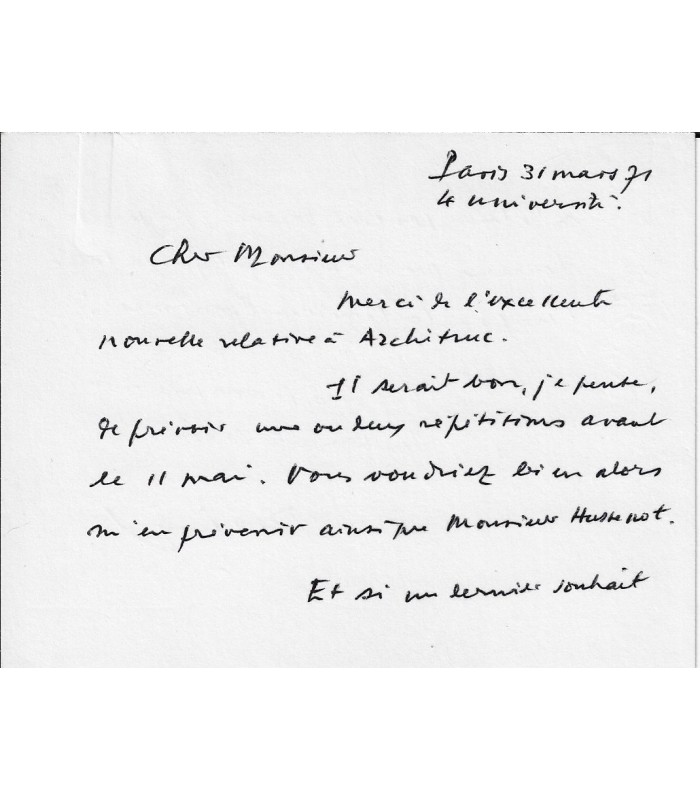 Paris 31 mars 71
4 université.
Cher Monsieur
Merci de l'excellente
nouvelle relative à Architruc.
Il serait bon, je pense,
de prévoir une ou deux répétitions avant
le 11 mai. Vous voudriez bien alors
m'en prévenir ainsi que Monsieur Hussenot.
Et si un dernier souhait